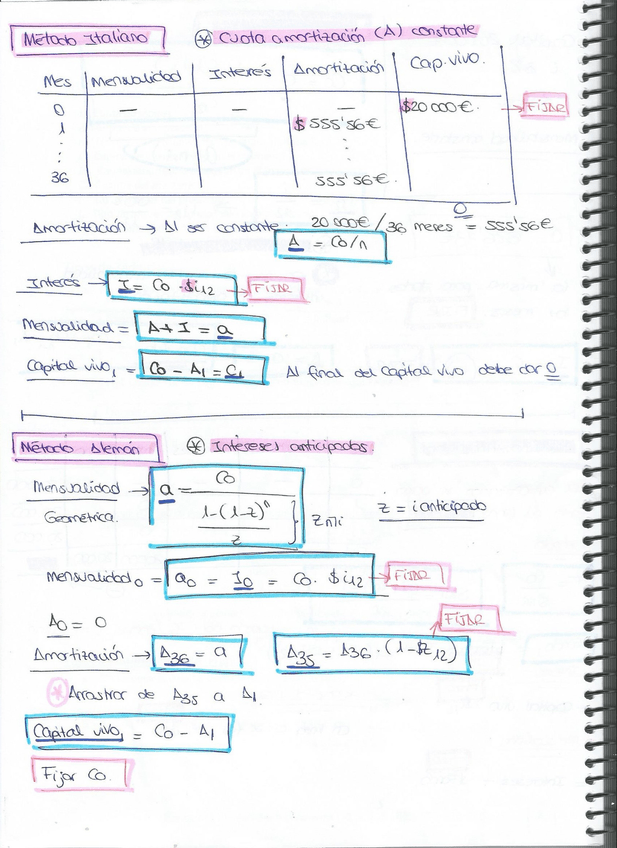 Método Italiano ⊛ Cuota amortización (A) constante
Mes Mensualidad Interés Amortización Cap. vivo.
0 — — — $20 000€. → FIJAR
1 $ 555'56€
⋮ ⋮
36 555'56€.
0
Amortización → Al ser constante. 20 000€ / 36 meses = 555'56€
A = Co/n
Interés → I = Co · $i12 → FIJAR
Mensualidad = A + I = a
Capital vivo1 = Co - A1 = C1 Al final del capital vivo debe dar 0
Método Alemán ⊛ Intereses anticipados.
Mensualidad → a = Co
Geométrica. 1-(1-z)^n } z n i z = i anticipado
z
Mensualidad0 = a0 = I0 = Co. $i12 → FIJAR
A0 = 0
FIJAR
Amortización → A36 = a A35 = A36 · (1-$z12)
* Arrastrar de A35 a A1.
Capital vivo1 = Co - A1
Fijar Co.